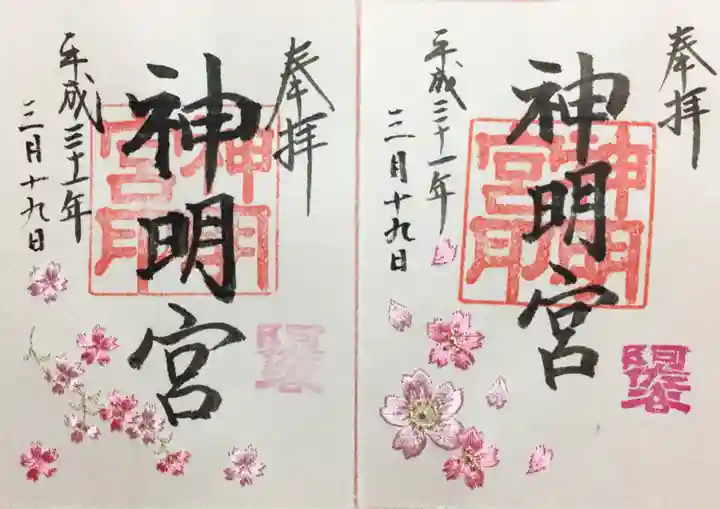 奉拝
神明宮
平成三十一年
三月十九日
神明宮印
奉拝
神明宮
平成三十一年
三月十九日
神明宮印